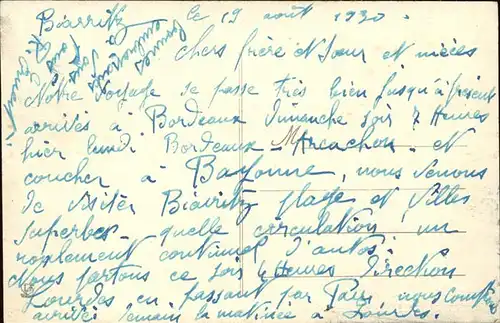 Biarritz le 19 août 1930.
Chers frère et Sœur et nièces
Notre voyage se passe très bien jusqu'à présent
arrivés à Bordeaux Dimanche soir 7 Heures
hier lundi Bordeaux - Arcachon et
coucher à Bayonne, nous venons
de visiter Biarritz plage et Villes
superbes - quelle circulation, un
roulement continuel d'autos.
Nous partons ce soir 4 Heures Direction
Lourdes en passant par Pau, nous comptons
arrivé demain la matinée à Lourdes.
Bonnes
à vous
tous